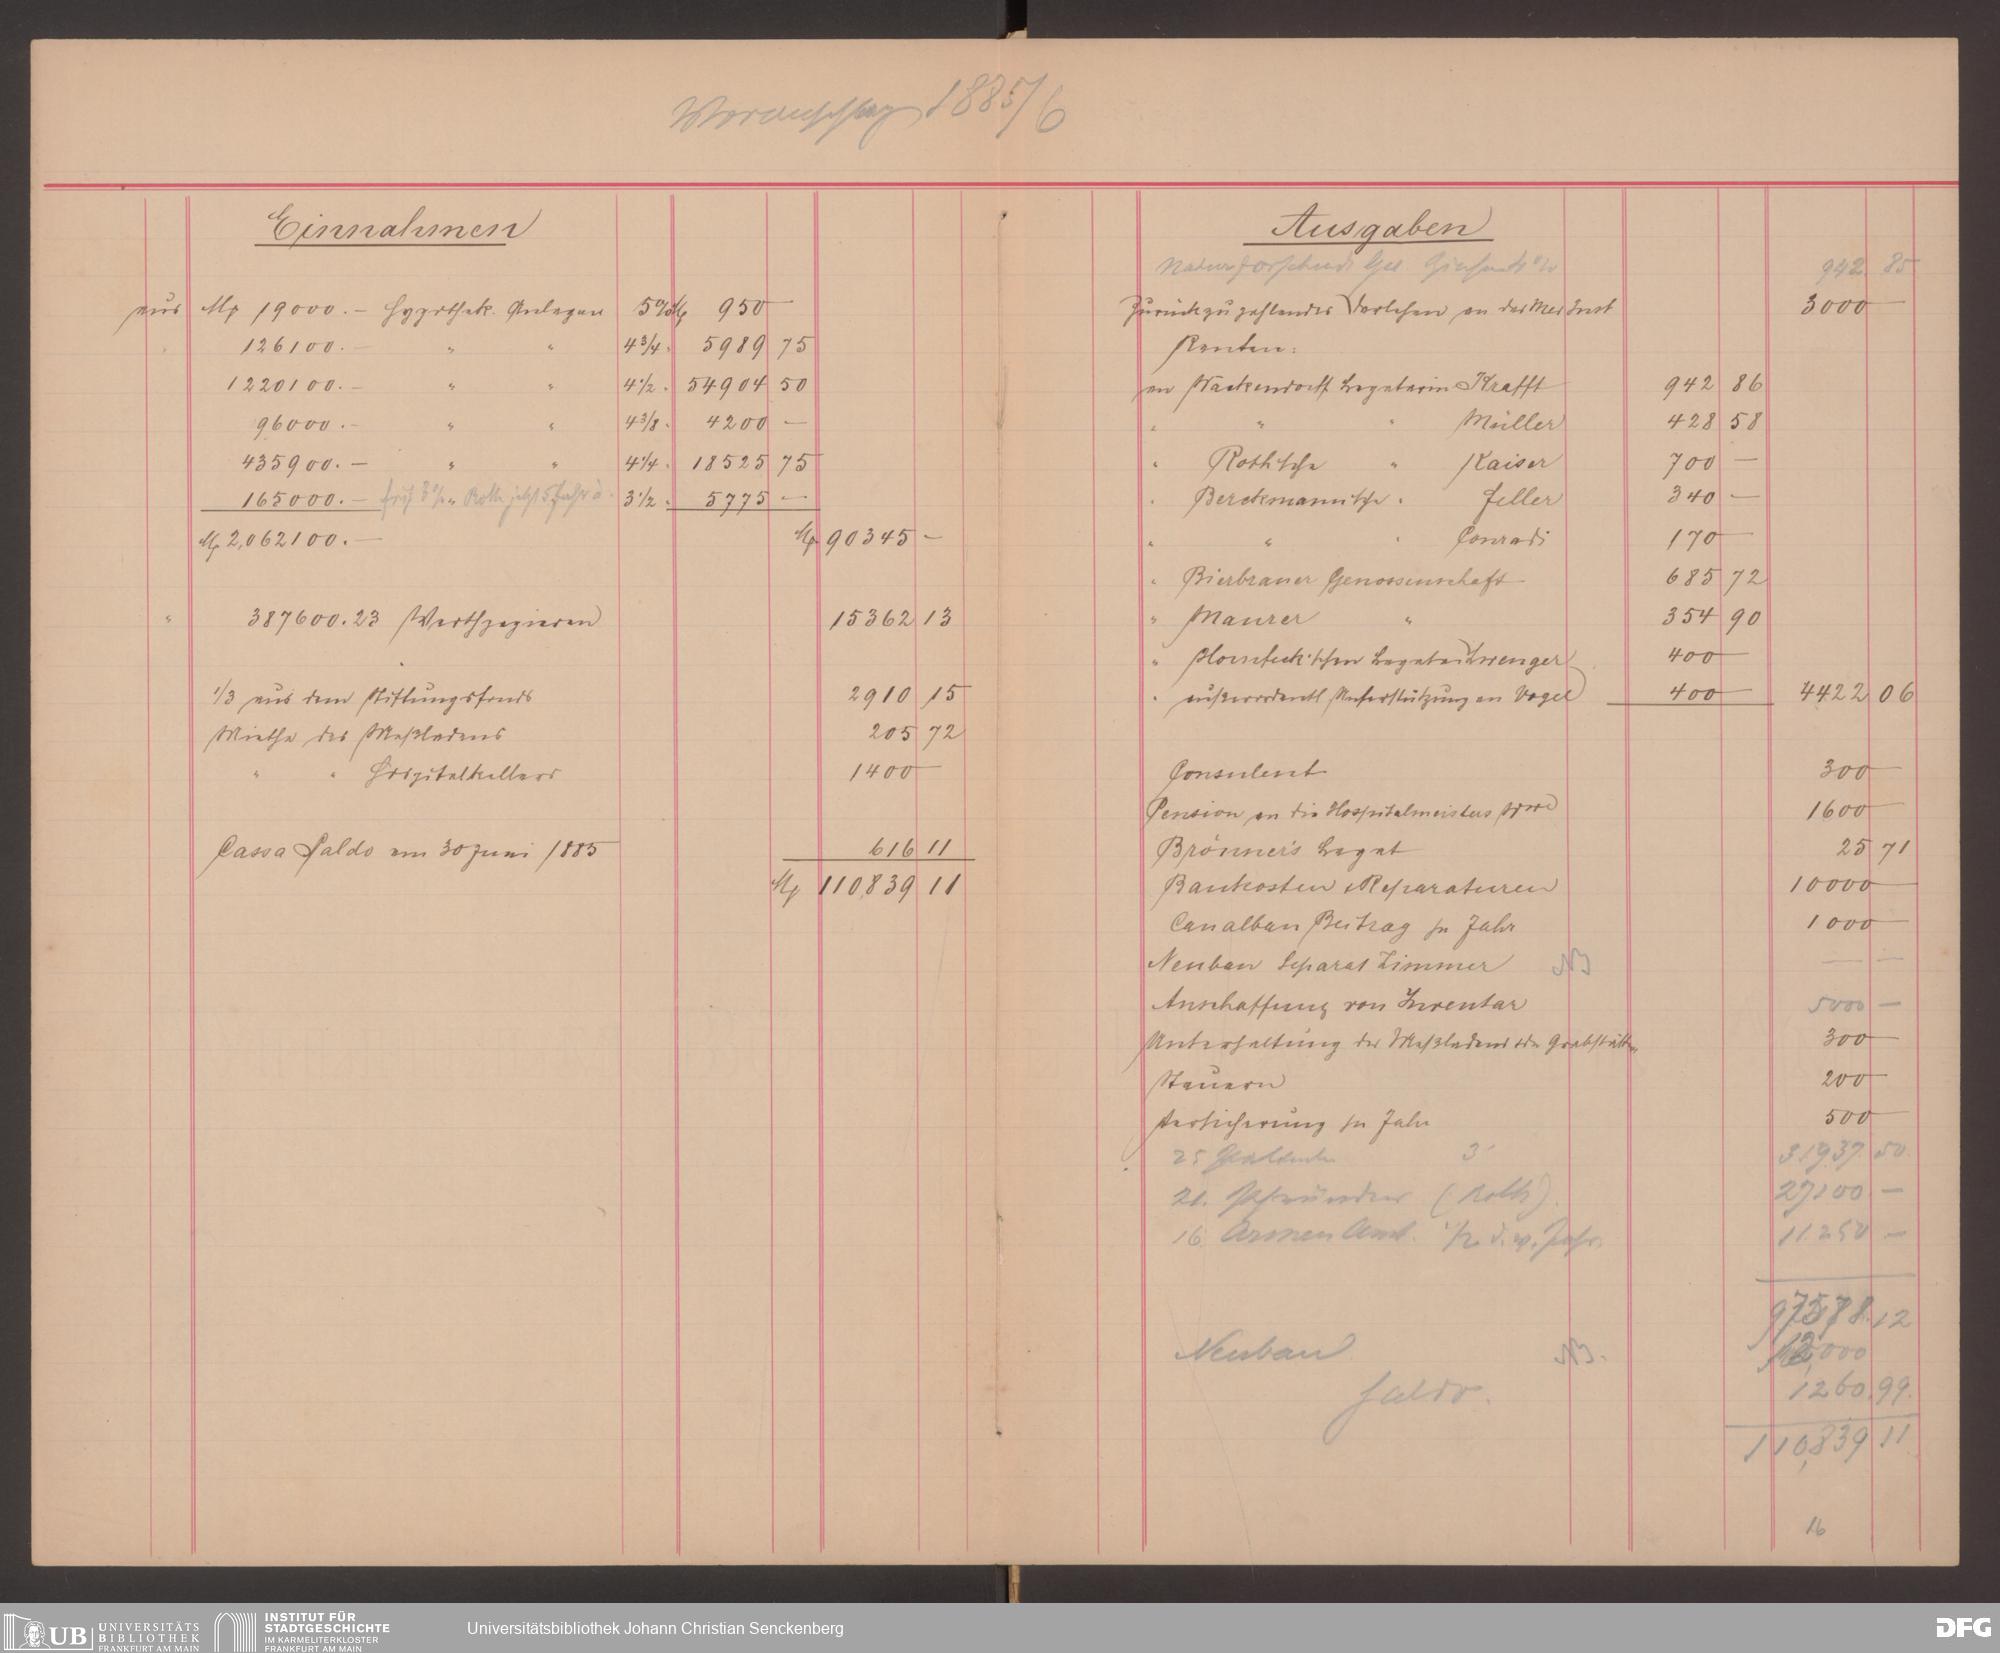 Voranschlag 1885/6
Einnahmen
aus Mk 19000.— Hypothek. Anlagen 5% Mk 950 —
126100.— " " 4 3/4 " 5989 75
1220100.— " " 4 1/2 " 54904 50
96000.— " " 4 3/8 " 4200 —
435900.— " " 4 1/4 " 18525 75
165000.— Roth jetzt 5 Jahr à 3 1/2 " 5775 —
Mk 2,062100.— Mk 90345 —
" 387600.23 Werthpapieren 15362 13
1/3 aus dem Stiftungsfonds 2910 15
Miethe des Meßladens 205 72
" " Hospitalkellers 1400 —
Cassa Saldo am 30 Juni 1885 616 11
Mk 110,839 11
Ausgaben
Naturforschende Ges. 942 85
Zurückzuzahlendes Darlehen an das Med Inst 3000 —
Renten:
an Nackendorff Legatarin Krafft 942 86
" " " Müller 428 58
" Roth'sche " Kaiser 700 —
" Berckmann'sche " Feller 340 —
" " " Conradi 170 —
" Bierbrauer Genossenschaft 685 72
" Maurer " 354 90
" Legatar Zwenger 400 —
" außerordentl Unterstützung an Vogel 400 — 4422 06
Consulent 300 —
Pension an die Hospitalmeisters Wwe 1600 —
Brönner's Legat 25 71
Baukosten & Reparaturen 10000 —
Canalbau Beitrag pr Jahr 1000 —
Neubau Separat Zimmer NB — —
Anschaffung von Inventar 5000 —
Unterhaltung des Meßladens & der Grabstätten 300 —
Steuern 200 —
Versicherung pr Jahr 500 —
25 3 31937. 50.
21. Pfründner (Roth). 27100 —
16 Armen Amt. 1/2 d. v. Jahr. 11250 —
97578. 12
Neubau NB. 12,000
Saldo. 1260. 99.
110,839 11
16
UB UNIVERSITÄTS
BIBLIOTHEK
FRANKFURT AM MAIN
INSTITUT FÜR
STADTGESCHICHTE
IM KARMELITERKLOSTER
FRANKFURT AM MAIN
Universitätsbibliothek Johann Christian Senckenberg
DFG